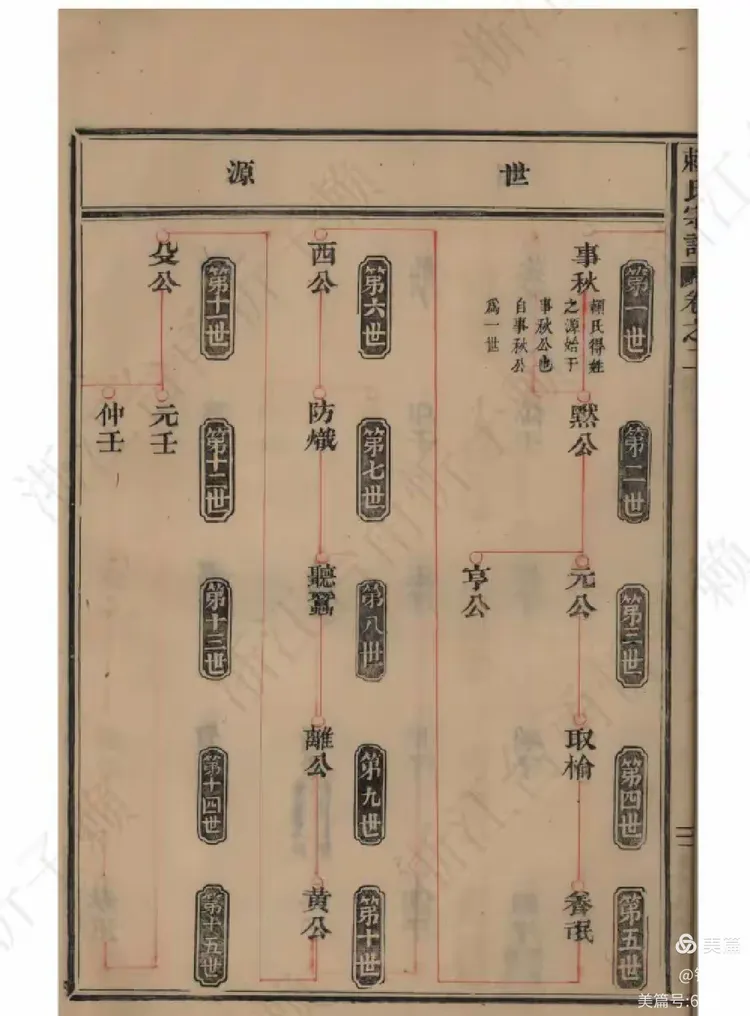 世源
賴氏宗譜 卷之二
第一世
事秋
賴氏得姓
之源始于
事秋公也
自事秋公
為一世
第二世
黙公
第三世
元公
亨公
第四世
取榆
第五世
養氓
第六世
西公
第七世
防熾
第八世
聽蠶
第九世
離公
第十世
黄公
第十一世
殳公
第十二世
元壬
仲壬
第十三世
第十四世
第十五世
美篇
美篇号:6